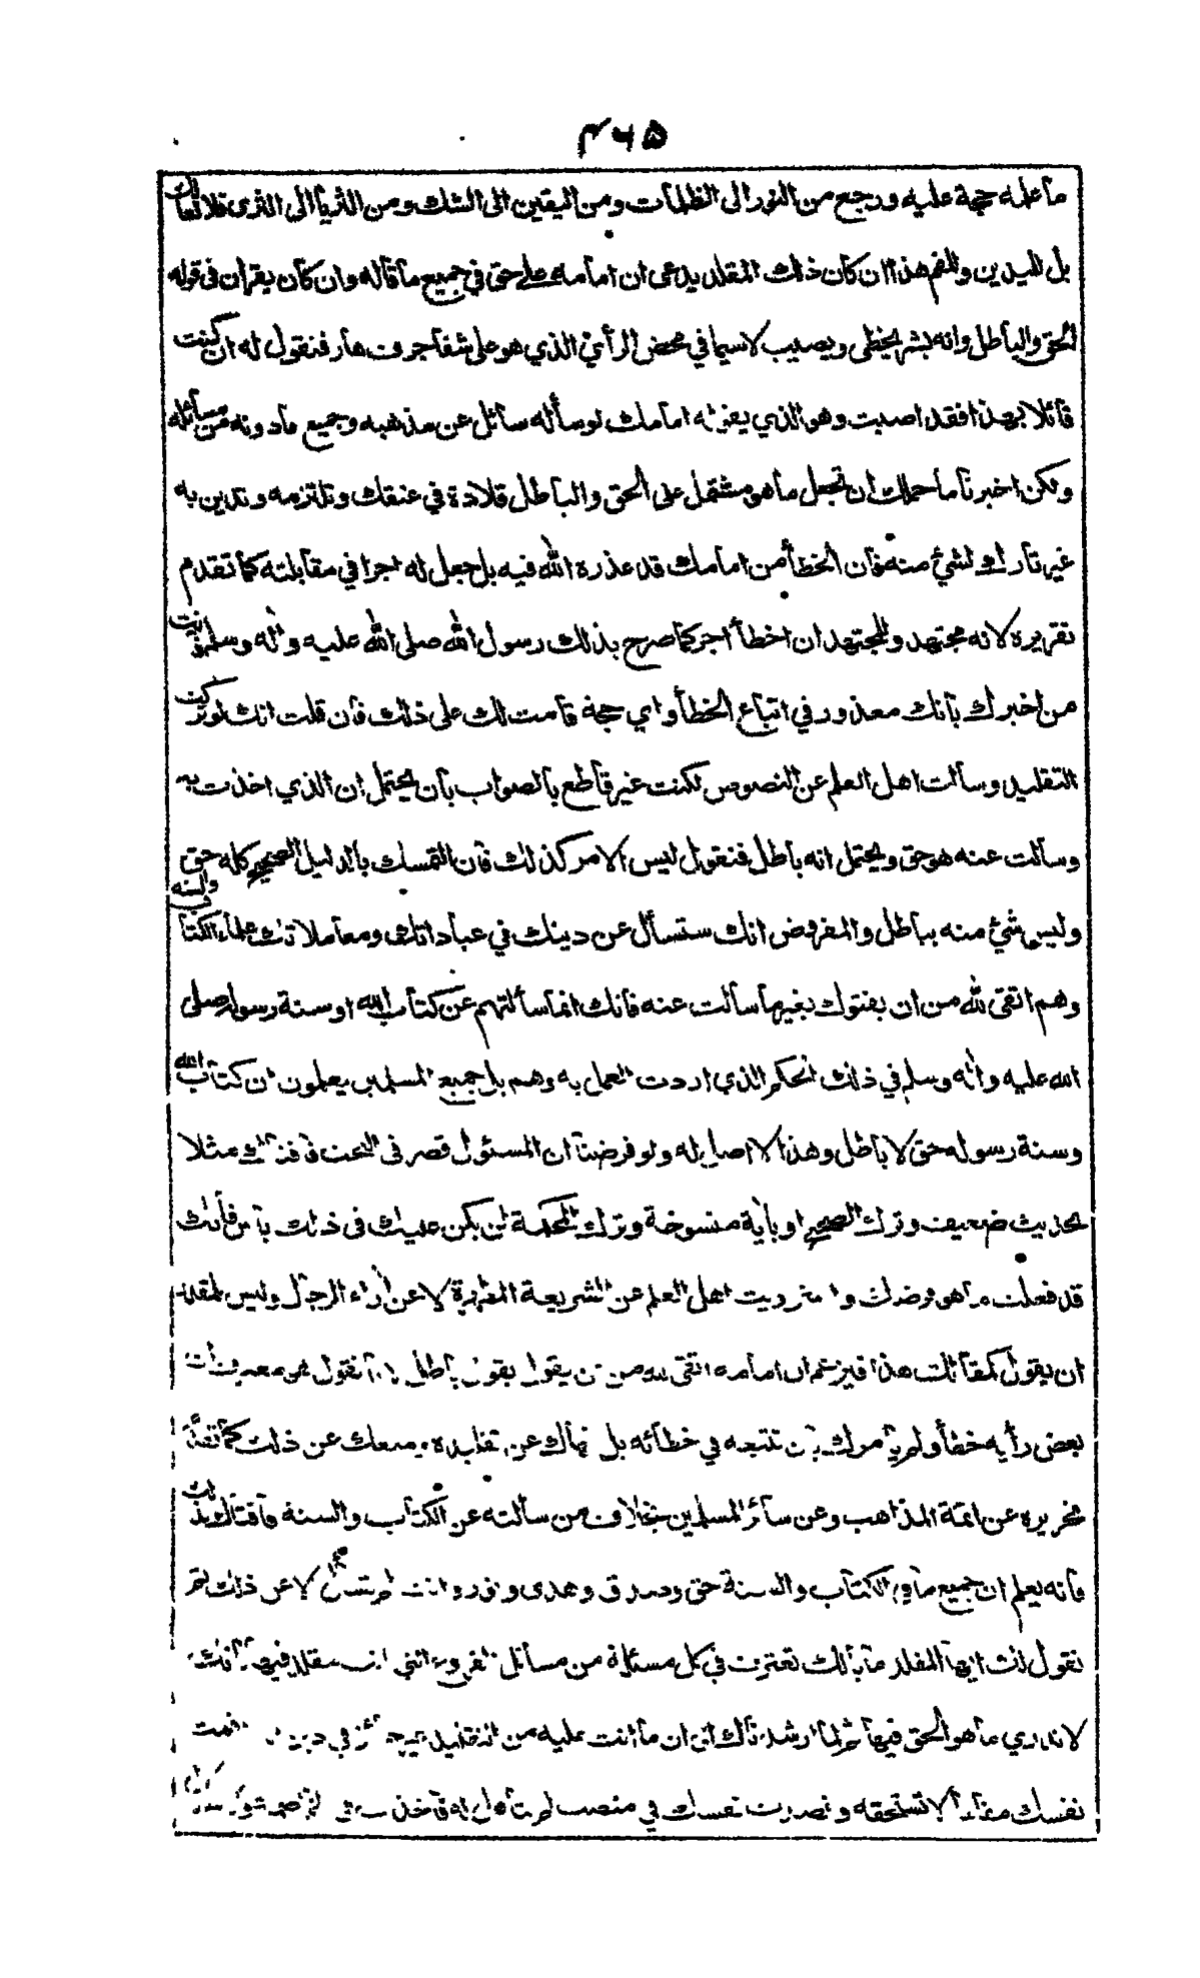 ٤٦٥
ما علمه حجة عليه ورجع من النور الى الظلمات ومن اليقين الى الشك ومن الثريا الى الثرى فلا لعا لك
بل لليدين وللفم هذا ان كان ذلك المقلد يدعى ان امامه على حق في جميع ما قاله وان كان يقر ان في قوله
الحق والباطل وانه بشر يخطى ويصيب لاسيما في محض الرأي الذي هو على شفا جرف هار فنقول له ان كنت
قائلا بهذا فقد اصبت وهو الذي يقوله امامك لو سأله سائل عن مذهبه وجميع ما دونه من مسائله
ولكن اخبرنا ما حملك ان تجعل ما هو مشتمل على الحق والباطل قلادة في عنقك وتلتزمه وتدين به
غير تارك لشيء منه فان الخطأ من امامك قد عذره الله فيه بل جعل له اجرا في مقابلته كما تقدم
تقريره لانه مجتهد وللمجتهد ان اخطأ اجر كما صرح بذلك رسول الله صلى الله عليه وآله وسلم فانت
من اخبرك بانك معذور في اتباع الخطأ واي حجة قامت لك على ذلك فان قلت انك لو تركت
التقليد وسألت اهل العلم عن النصوص لكنت غير قاطع بالصواب بان يحتمل ان الذي اخذت به
وسألت عنه هو حق ويحتمل انه باطل فنقول ليس الامر كذلك فان التمسك بالدليل الصحيح كله حق
وليس شيء منه بباطل والمفروض انك ستسأل عن دينك في عباداتك ومعاملاتك علماء الكتاب والسنة
وهم اتقى لله من ان يفتوك بغير ما سألت عنه فانك انما سألتهم عن كتاب الله او سنة رسوله صلى
الله عليه وآله وسلم في ذلك الحكم الذي اردت العمل به وهم بل جميع المسلمين يعلمون ان كتاب الله
وسنة رسوله حق لا باطل وهذا لا اصل له ولو فرضنا ان المسئول قصر في البحث فافتاك مثلا
بحديث ضعيف وترك الصحيح او بآية منسوخة وترك المحكمة لم يكن عليك في ذلك بأس فانك
قد فعلت ما هو فرضك واسترويت اهل العلم عن الشريعة المطهرة لا عن آراء الرجال وليس للمقلد
ان يقول كمقالتك هذا فيزعم ان امامه اتقى لله من ان يقول بقول باطل لانا نقول هو معترف ان
بعض رأيه خطأ ولم يأمرك بان تتبعه في خطائه بل نهاك عن تقليده ومنعك عن ذلك كما تقدم
تحريره عن ائمة المذاهب وعن سائر المسلمين بخلاف من سألته عن الكتاب والسنة فافتاك بذلك
فانه يعلم ان جميع ما في الكتاب والسنة حق وصدق وهدى ونور وانت لم تسأل الا عن ذلك ثم
نقول لك ايها المقلد ما بالك تعترف في كل مسئلة من مسائل الفروع التي انت مقلد فيها بانك
لا تدري ما هو الحق فيها ثم لما ارشدناك الى ان ما انت عليه من التقليد غير جائز في دين اقمت
نفسك مقاما لا تستحقه ونصبت نفسك في منصب لم تتأهل له فاخذت في